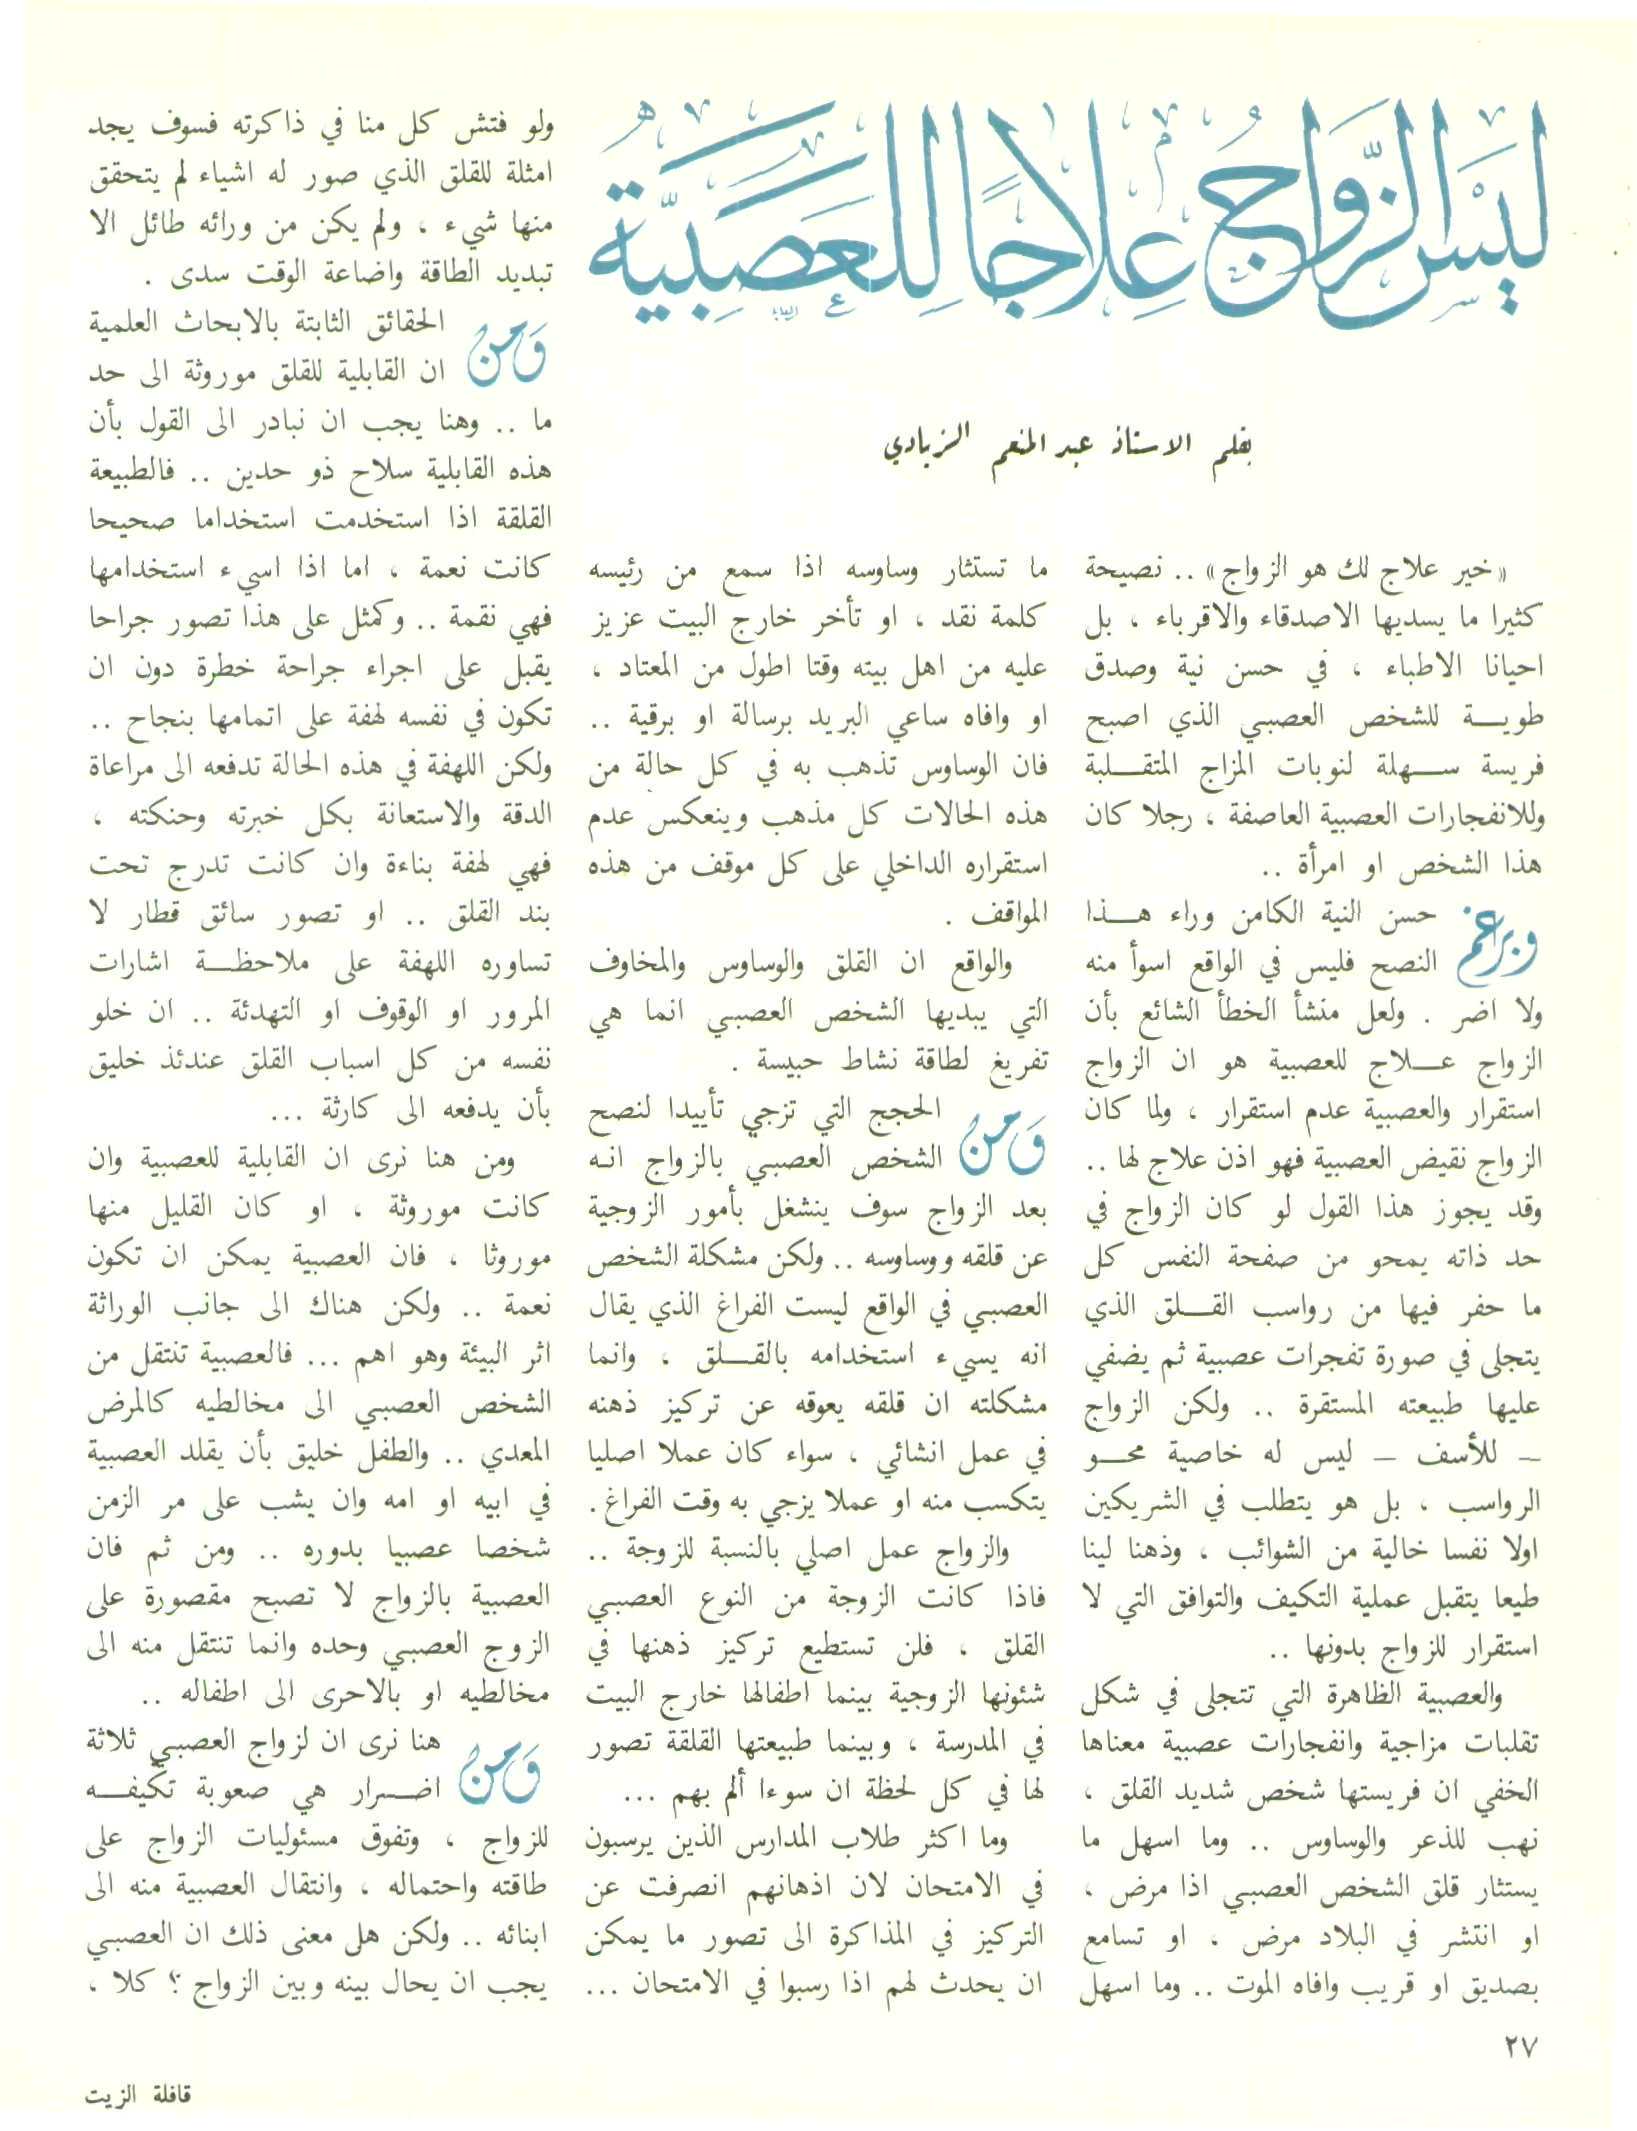 ليس الزواج علاجا للعصبية
بقلم الاستاذ عبد المنعم الزيادي
«خير علاج لك هو الزواج» .. نصيحة
كثيرا ما يسديها الاصدقاء والاقرباء ، بل
احيانا الاطباء ، في حسن نية وصدق
طويــة للشخص العصبي الذي اصبح
فريسة ســهلة لنوبات المزاج المتقــلبة
وللانفجارات العصبية العاصفة ، رجلا كان
هذا الشخص او امرأة ..
وبرغم حسن النية الكامن وراء هــذا
النصح فليس في الواقع اسوأ منه
ولا اضر . ولعل منشأ الخطأ الشائع بأن
الزواج عــلاج للعصبية هو ان الزواج
استقرار والعصبية عدم استقرار ، ولما كان
الزواج نقيض العصبية فهو اذن علاج لها ..
وقد يجوز هذا القول لو كان الزواج في
حد ذاته يمحو من صفحة النفس كل
ما حفر فيها من رواسب القــلق الذي
يتجلى في صورة تفجرات عصبية ثم يضفي
عليها طبيعته المستقرة .. ولكن الزواج
– للأسف – ليس له خاصية محــو
الرواسب ، بل هو يتطلب في الشريكين
اولا نفسا خالية من الشوائب ، وذهنا لينا
طيعا يتقبل عملية التكيف والتوافق التي لا
استقرار للزواج بدونها ..
والعصبية الظاهرة التي تتجلى في شكل
تقلبات مزاجية وانفجارات عصبية معناها
الخفي ان فريستها شخص شديد القلق ،
نهب للذعر والوساوس .. وما اسهل ما
يستثار قلق الشخص العصبي اذا مرض ،
او انتشر في البلاد مرض ، او تسامع
بصديق او قريب وافاه الموت .. وما اسهل
ما تستثار وساوسه اذا سمع من رئيسه
كلمة نقد ، او تأخر خارج البيت عزيز
عليه من اهل بيته وقتا اطول من المعتاد ،
او وافاه ساعي البريد برسالة او برقية ..
فان الوساوس تذهب به في كل حالة من
هذه الحالات كل مذهب وينعكس عدم
استقراره الداخلي على كل موقف من هذه
المواقف .
والواقع ان القلق والوساوس والمخاوف
التي يبديها الشخص العصبي انما هي
تفريغ لطاقة نشاط حبيسة .
ومن الحجج التي تزجي تأييدا لنصح
الشخص العصبي بالزواج انه
بعد الزواج سوف ينشغل بأمور الزوجية
عن قلقه ووساوسه .. ولكن مشكلة الشخص
العصبي في الواقع ليست الفراغ الذي يقال
انه يسيء استخدامه بالقــلق ، وانما
مشكلته ان قلقه يعوقه عن تركيز ذهنه
في عمل انشائي ، سواء كان عملا اصليا
يتكسب منه او عملا يزجي به وقت الفراغ .
والزواج عمل اصلي بالنسبة للزوجة ..
فاذا كانت الزوجة من النوع العصبي
القلق ، فلن تستطيع تركيز ذهنها في
شئونها الزوجية بينما اطفالها خارج البيت
في المدرسة ، وبينما طبيعتها القلقة تصور
لها في كل لحظة ان سوءا ألم بهم ...
وما اكثر طلاب المدارس الذين يرسبون
في الامتحان لان اذهانهم انصرفت عن
التركيز في المذاكرة الى تصور ما يمكن
ان يحدث لهم اذا رسبوا في الامتحان ...
ولو فتش كل منا في ذاكرته فسوف يجد
امثلة للقلق الذي صور له اشياء لم يتحقق
منها شيء ، ولم يكن من ورائه طائل الا
تبديد الطاقة واضاعة الوقت سدى .
ومن الحقائق الثابتة بالابحاث العلمية
ان القابلية للقلق موروثة الى حد
ما .. وهنا يجب ان نبادر الى القول بأن
هذه القابلية سلاح ذو حدين .. فالطبيعة
القلقة اذا استخدمت استخداما صحيحا
كانت نعمة ، اما اذا اسيء استخدامها
فهي نقمة .. وكمثل على هذا تصور جراحا
يقبل على اجراء جراحة خطرة دون ان
تكون في نفسه لهفة على اتمامها بنجاح ..
ولكن اللهفة في هذه الحالة تدفعه الى مراعاة
الدقة والاستعانة بكل خبرته وحنكته ،
فهي لهفة بناءة وان كانت تدرج تحت
بند القلق .. او تصور سائق قطار لا
تساوره اللهفة على ملاحظــة اشارات
المرور او الوقوف او التهدئة .. ان خلو
نفسه من كل اسباب القلق عندئذ خليق
بأن يدفعه الى كارثة ...
ومن هنا نرى ان القابلية للعصبية وان
كانت موروثة ، او كان القليل منها
موروثا ، فان العصبية يمكن ان تكون
نعمة .. ولكن هناك الى جانب الوراثة
اثر البيئة وهو اهم ... فالعصبية تنتقل من
الشخص العصبي الى مخالطيه كالمرض
المعدي .. والطفل خليق بأن يقلد العصبية
في ابيه او امه وان يشب على مر الزمن
شخصا عصبيا بدوره .. ومن ثم فان
العصبية بالزواج لا تصبح مقصورة على
الزوج العصبي وحده وانما تنتقل منه الى
مخالطيه او بالاحرى الى اطفاله ..
ومن هنا نرى ان لزواج العصبي ثلاثة
اضــرار هي صعوبة تكيفــه
للزواج ، وتفوق مسئوليات الزواج على
طاقته واحتماله ، وانتقال العصبية منه الى
ابنائه .. ولكن هل معنى ذلك ان العصبي
يجب ان يحال بينه وبين الزواج ؟ كلا ،
٢٧
قافلة الزيت